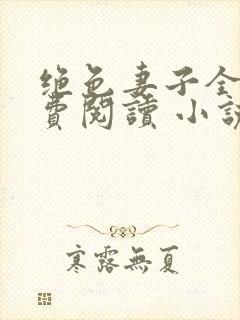 绝色妻子全
費閱讀 小説
寒露無夏